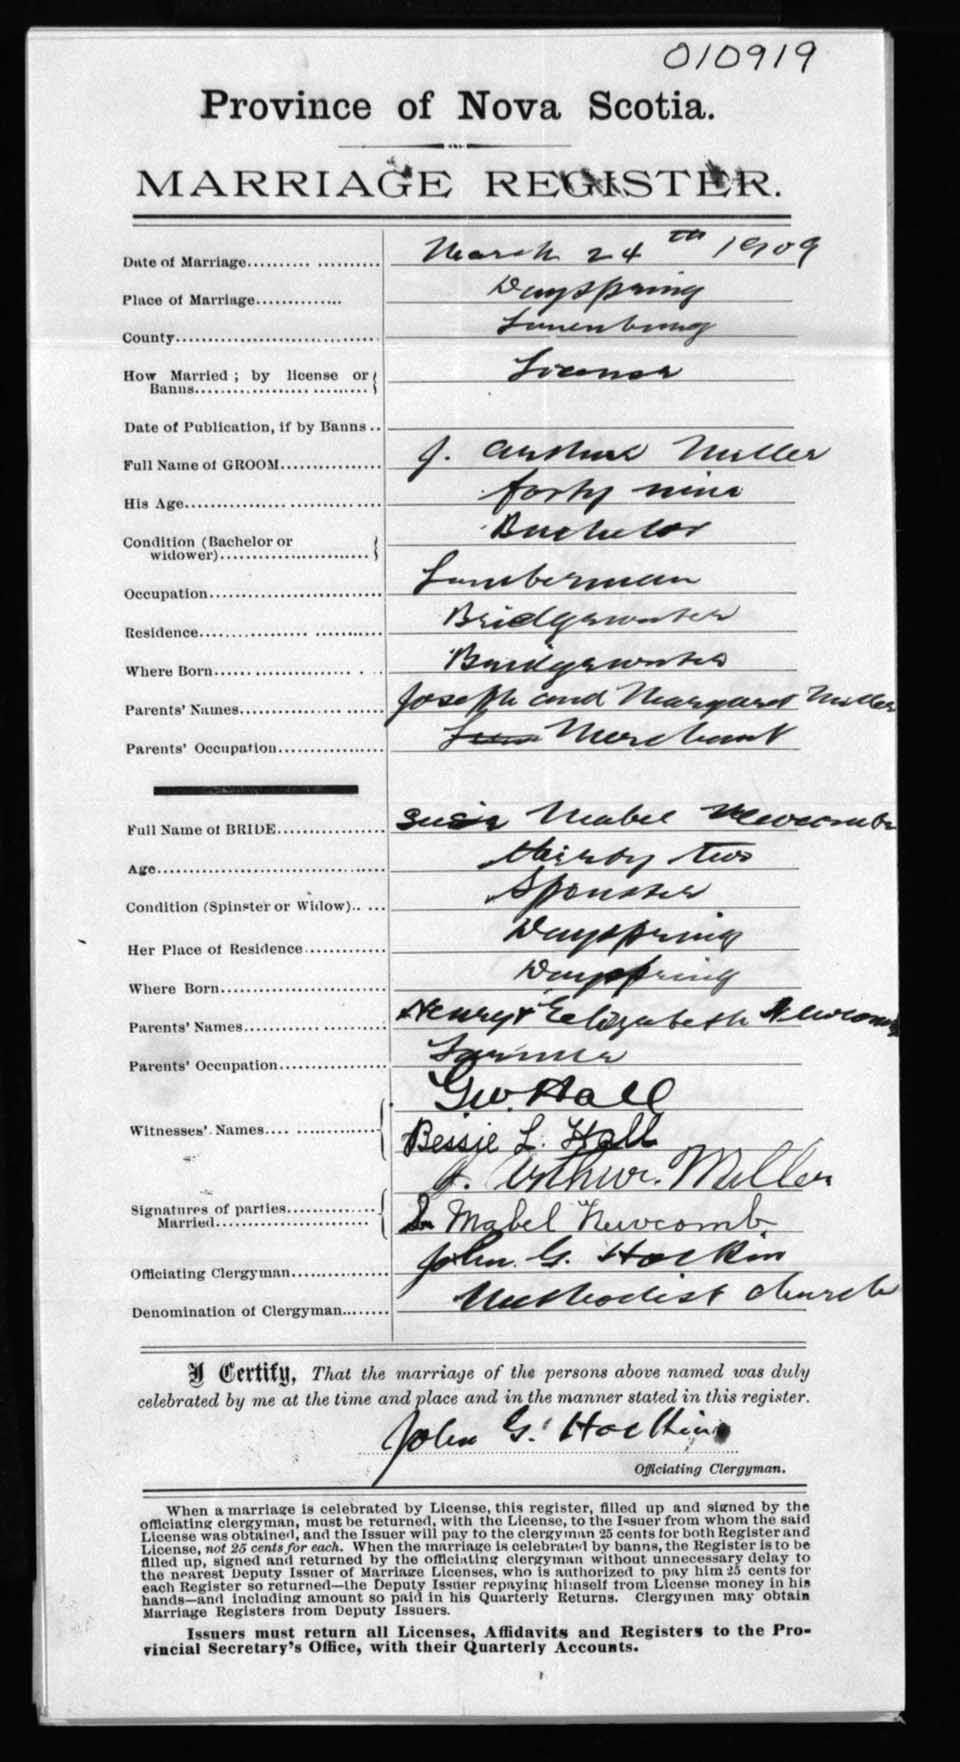 010919
Province of Nova Scotia.
MARRIAGE REGISTER.
Date of Marriage.......... ........... March 24th 1909
Place of Marriage.............. Dayspring
County................................. Lunenburg
How Married ; by license or License
Banns.................... .........
Date of Publication, if by Banns ..
Full Name of GROOM................ J. Arthur Miller
His Age................. .............. forty nine
Condition (Bachelor or Bachelor
widower)........................
Occupation............................ Lumberman
Residence................ ........... Bridgewater
Where Born...................... . .. Bridgewater
Parents' Names....................... Joseph and Margaret Miller
Parents' Occupation................. Merchant
Full Name of BRIDE................. Susie Mabel Newcomb
Age..................................... thirty two
Condition (Spinster or Widow).. .... Spinster
Her Place of Residence............. Dayspring
Where Born........................... Dayspring
Parents' Names............ .......... Henry & Elizabeth Newcomb
Parents' Occupation................. Farmer
G.W. Hall
Witnesses' Names.... ............. Bessie L. Hall
J. Arthur Miller
Signatures of parties..............
Married......................... S Mabel Newcomb
Officiating Clergyman............... John G. Hockin
Denomination of Clergyman........ Methodist Church
I Certify, That the marriage of the persons above named was duly
celebrated by me at the time and place and in the manner stated in this register.
John G. Hockin
Officiating Clergyman.
When a marriage is celebrated by License, this register, filled up and signed by the
officiating clergyman, must be returned, with the License, to the Issuer from whom the said
License was obtained, and the Issuer will pay to the clergyman 25 cents for both Register and
License, not 25 cents for each. When the marriage is celebrated by banns, the Register is to be
filled up, signed and returned by the officiating clergyman without unnecessary delay to
the nearest Deputy Issuer of Marriage Licenses, who is authorized to pay him 25 cents for
each Register so returned—the Deputy Issuer repaying himself from License money in his
hands—and including amount so paid in his Quarterly Returns. Clergymen may obtain
Marriage Registers from Deputy Issuers.
Issuers must return all Licenses, Affidavits and Registers to the Pro-
vincial Secretary's Office, with their Quarterly Accounts.